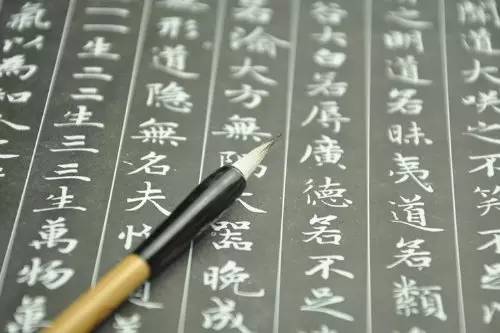 聞道大咲之不笑不
之明道若昧夷道若類
谷大白若辱廣德若不足
若渝大方無隅大器晚成
無形道隐無名夫
一一生二二生三三生萬物萬
氣以為和人